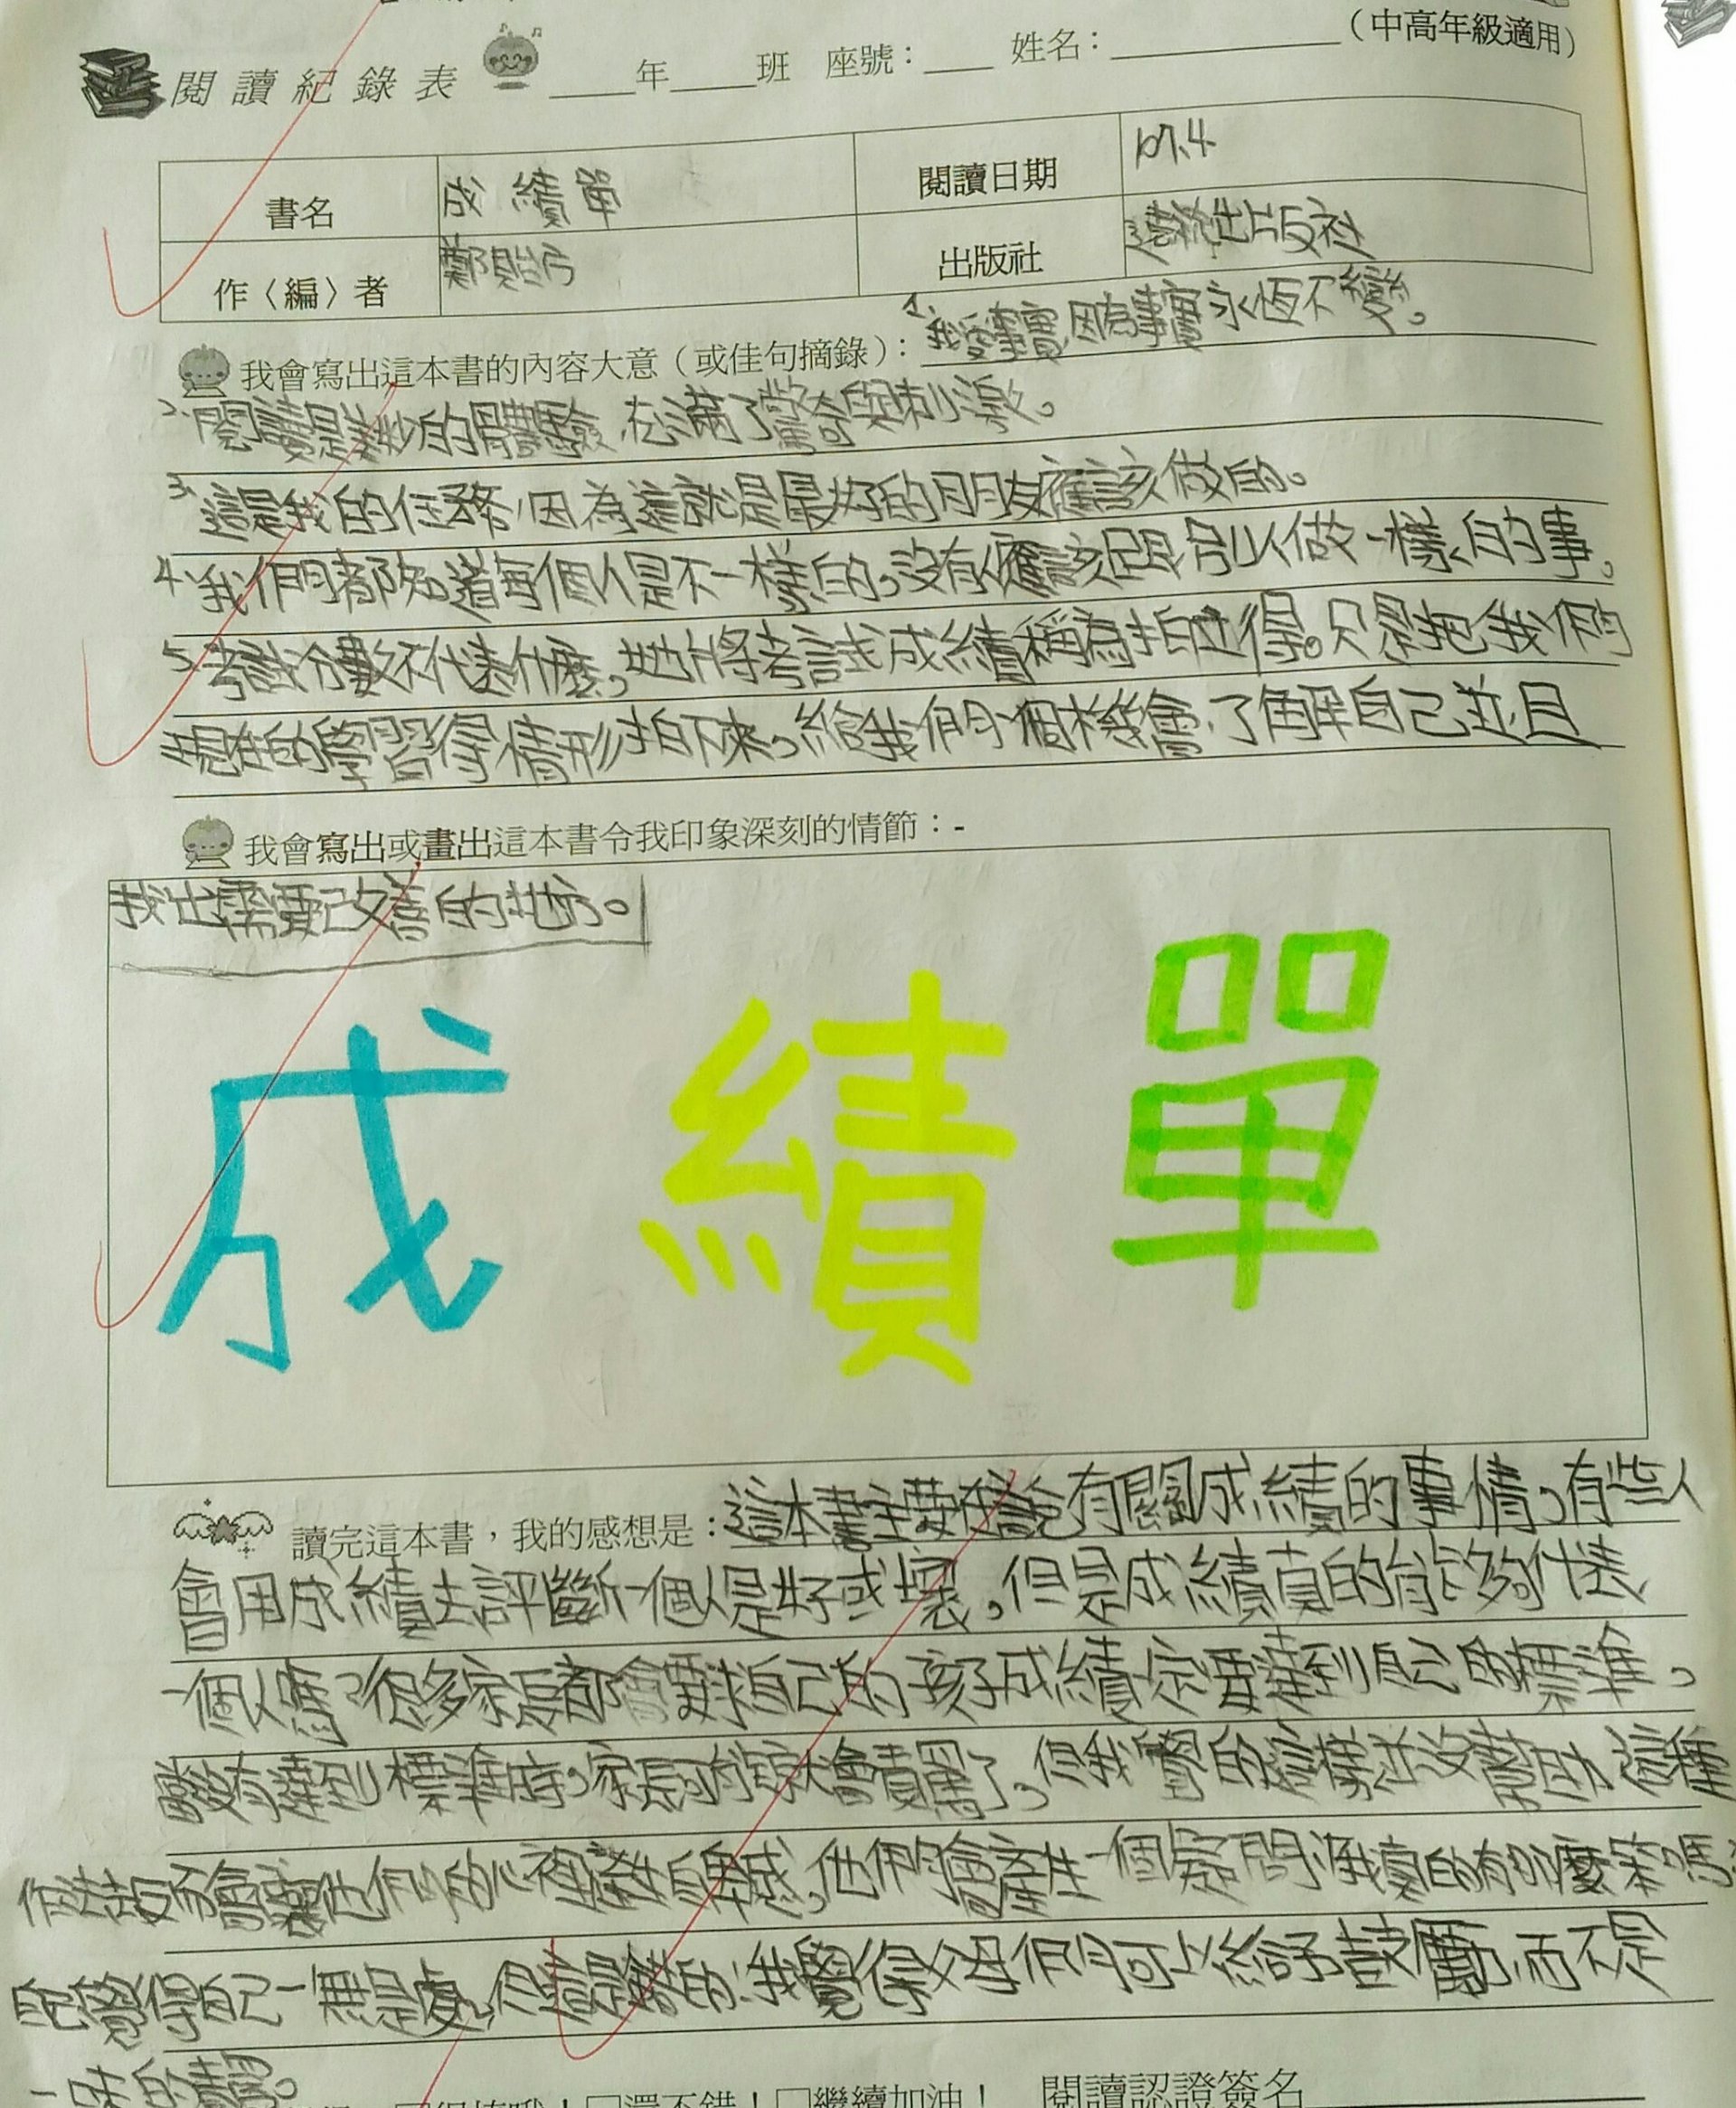 閱讀紀錄表 ____年____班 座號：___ 姓名：__________（中高年級適用）
書名 成績單 閱讀日期 107.4
作〈編〉者 鄭貽方 出版社 遠流出版社
我會寫出這本書的內容大意（或佳句摘錄）：1、我愛事實,因為事實永恆不變。
2、閱讀是美妙的體驗,充滿了驚奇與刺激。
3、這是我的任務,因為這就是最好的朋友應該做的。
4、我們都知道每個人是不一樣的,沒有人應該跟別人做一樣的事。
5、考試分數不代表什麼,她將考試成績稱為拍立得。只是把我們
現在的學習得情形拍下來,給我們一個機會,了解自己並且
我會寫出或畫出這本書令我印象深刻的情節：-
找出需要改善的地方。
成績單
讀完這本書，我的感想是：這本書主要在說有關成績的事情,有些人
會用成績去評斷一個人是好或壞,但是成績真的能夠代表
一個人嗎?很多家長都會要求自己的孩子成績一定要達到自己的標準,
當沒有達到標準時,家長可能就會責罵了,但我覺的這樣並沒幫助,這種
作法反而會讓他們的心裡產生自卑感,他們會產生一個疑問:我真的有那麼笨嗎?
自己覺得自己一無是處,但這是錯的,我覺得父母們可以給予鼓勵,而不是
一味的責罵。
□還不錯！□繼續加油！ 閱讀認證簽名